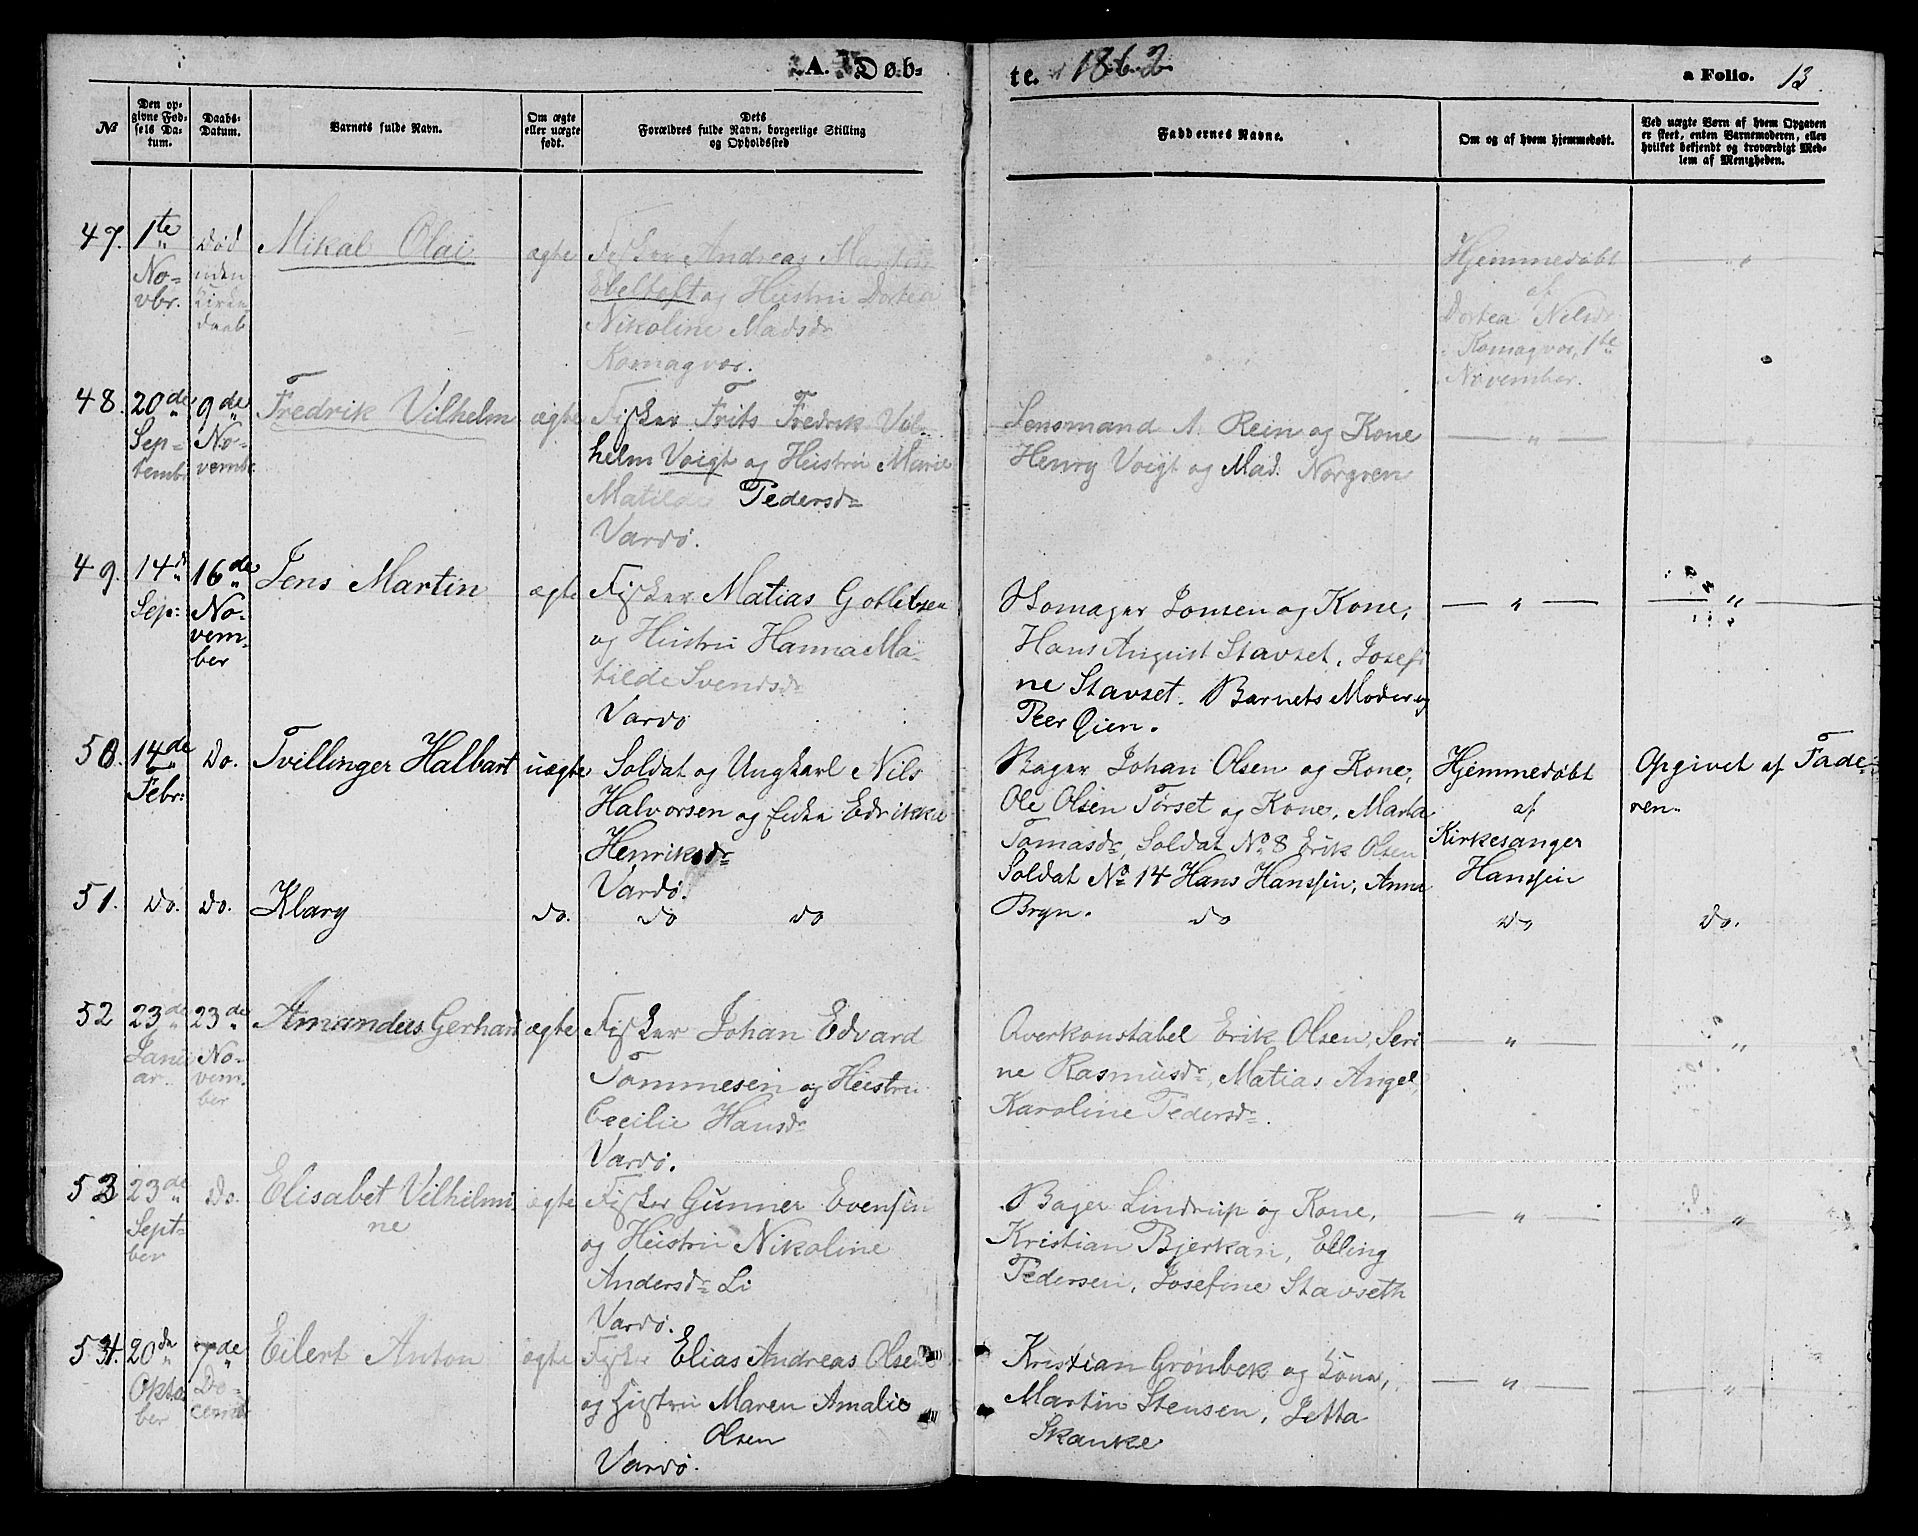 A. Døb-
te. 1862
a Folio. 13.
No
Den op-
givne Fød-
sels Da-
tum.
Daabs-
Datum.
Barnets fulde Navn.
Om ægte
eller uægte
født.
Dets
Forældres fulde Navn, borgerlige Stilling
og Opholdssted
Faddernes Navne.
Om og af hvem hjemmedøbt.
Ved uægte Børn af hvem Opgaven
er skeet, enten Barnemoderen, eller
hvilket bekjendt og troværdigt Med-
lem af Menigheden.
47.
1te
No-
vbr.
Død
uden
Kirke
daab
Mikal Olai
ægte
Fisker Andreas
Ebeltoft og Hustru Dortea
Nikoline Madsdr
Komagvær.
Hjemmedøbt
af
Dortea Nelsdr
Komagvær, 1te
November.
— " —
48.
20de
Sep-
tembr
9de
No-
vembr
Fredrik Vilhelm
ægte
Fisker Frits Fredrik Vil-
helm Voigt og Hustru Marie
Matilde Pedersdr
Vardö.
Lensmand A. Rein og Kone
Henry Voigt og Mad. Norgren
— " —
"
49.
14de
Sep:
16de
No-
vem-
ber
Jens Martin
ægte
Fisker Matias Gotlibsen
og Hustru Hanna Ma-
tilde Svendsdr
Vardö
Skomager Jonsen og Kone,
Hans August Stavset, Josefi
ne Stavset. Barnets Moder og
Peer Qien.
— " —
— " —
50.
14de
Febr:
Do.
Tvillinger Halbart
uægte
Soldat og Ungkarl Nils
Halvorsen og Enke Edrikke
Henriksdr
Vardö.
Bager Johan Olsen og Kone,
Ole Olsen Tørset og Kone, Marta
Tomasdr, Soldat No 8 Erik Olsen
Soldat No 14 Hans Hanssen, Anna
Bryn.
Hjemmedøbt
af
Kirkesanger
Hanssen
Opgivet af Fade-
ren.
51.
Do.
Do.
Klary
do.
do do
do
do
Do.
52
23de
Janu
ar.
23de
No-
vem-
ber
Amandus Gerhard
ægte
Fisker Johan Edvard
Tommesen og Hustru
Cecilie Hansdr
Vardö.
Overkonstabel Erik Olsen, Seri
ne Rasmusdr, Matias Angel,
Karoline Pedersdr.
— " —
— " —
53
23de
Sept-
ber
Do.
Elisabet Vilhelmi
ne
ægte
Fisker Gunner Evensen
og Hustru Nikoline
Andersdr Li
Vardö.
Bager Lindrup og Kone,
Kristian Bjerkan, Elling
Pedersen, Josefine Stavseth
— " —
— " —
54.
20de
Okto
ber
7de
De-
cembr
Eilert Anton
ægte
Fisker Elias Andreas Olsen
og Hustru Maren Amalie
Olsen
Vardö.
Kristian Grönbek og Kone,
Martin Stensen, Jetta
Skanke
— " —
— " —